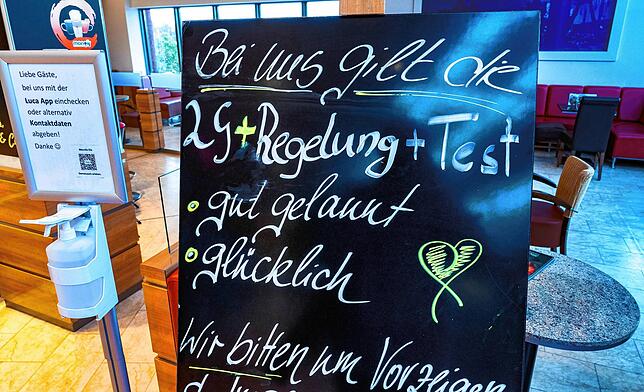 Liebe Gäste,
bei uns mit der
Luca App einchecken
oder alternativ
Kontaktdaten
abgeben!
Danke ☺
Bei uns gilt die
2G+Regelung+Test
• gut gelaunt
• glücklich
Wir bitten um Vorzeigen